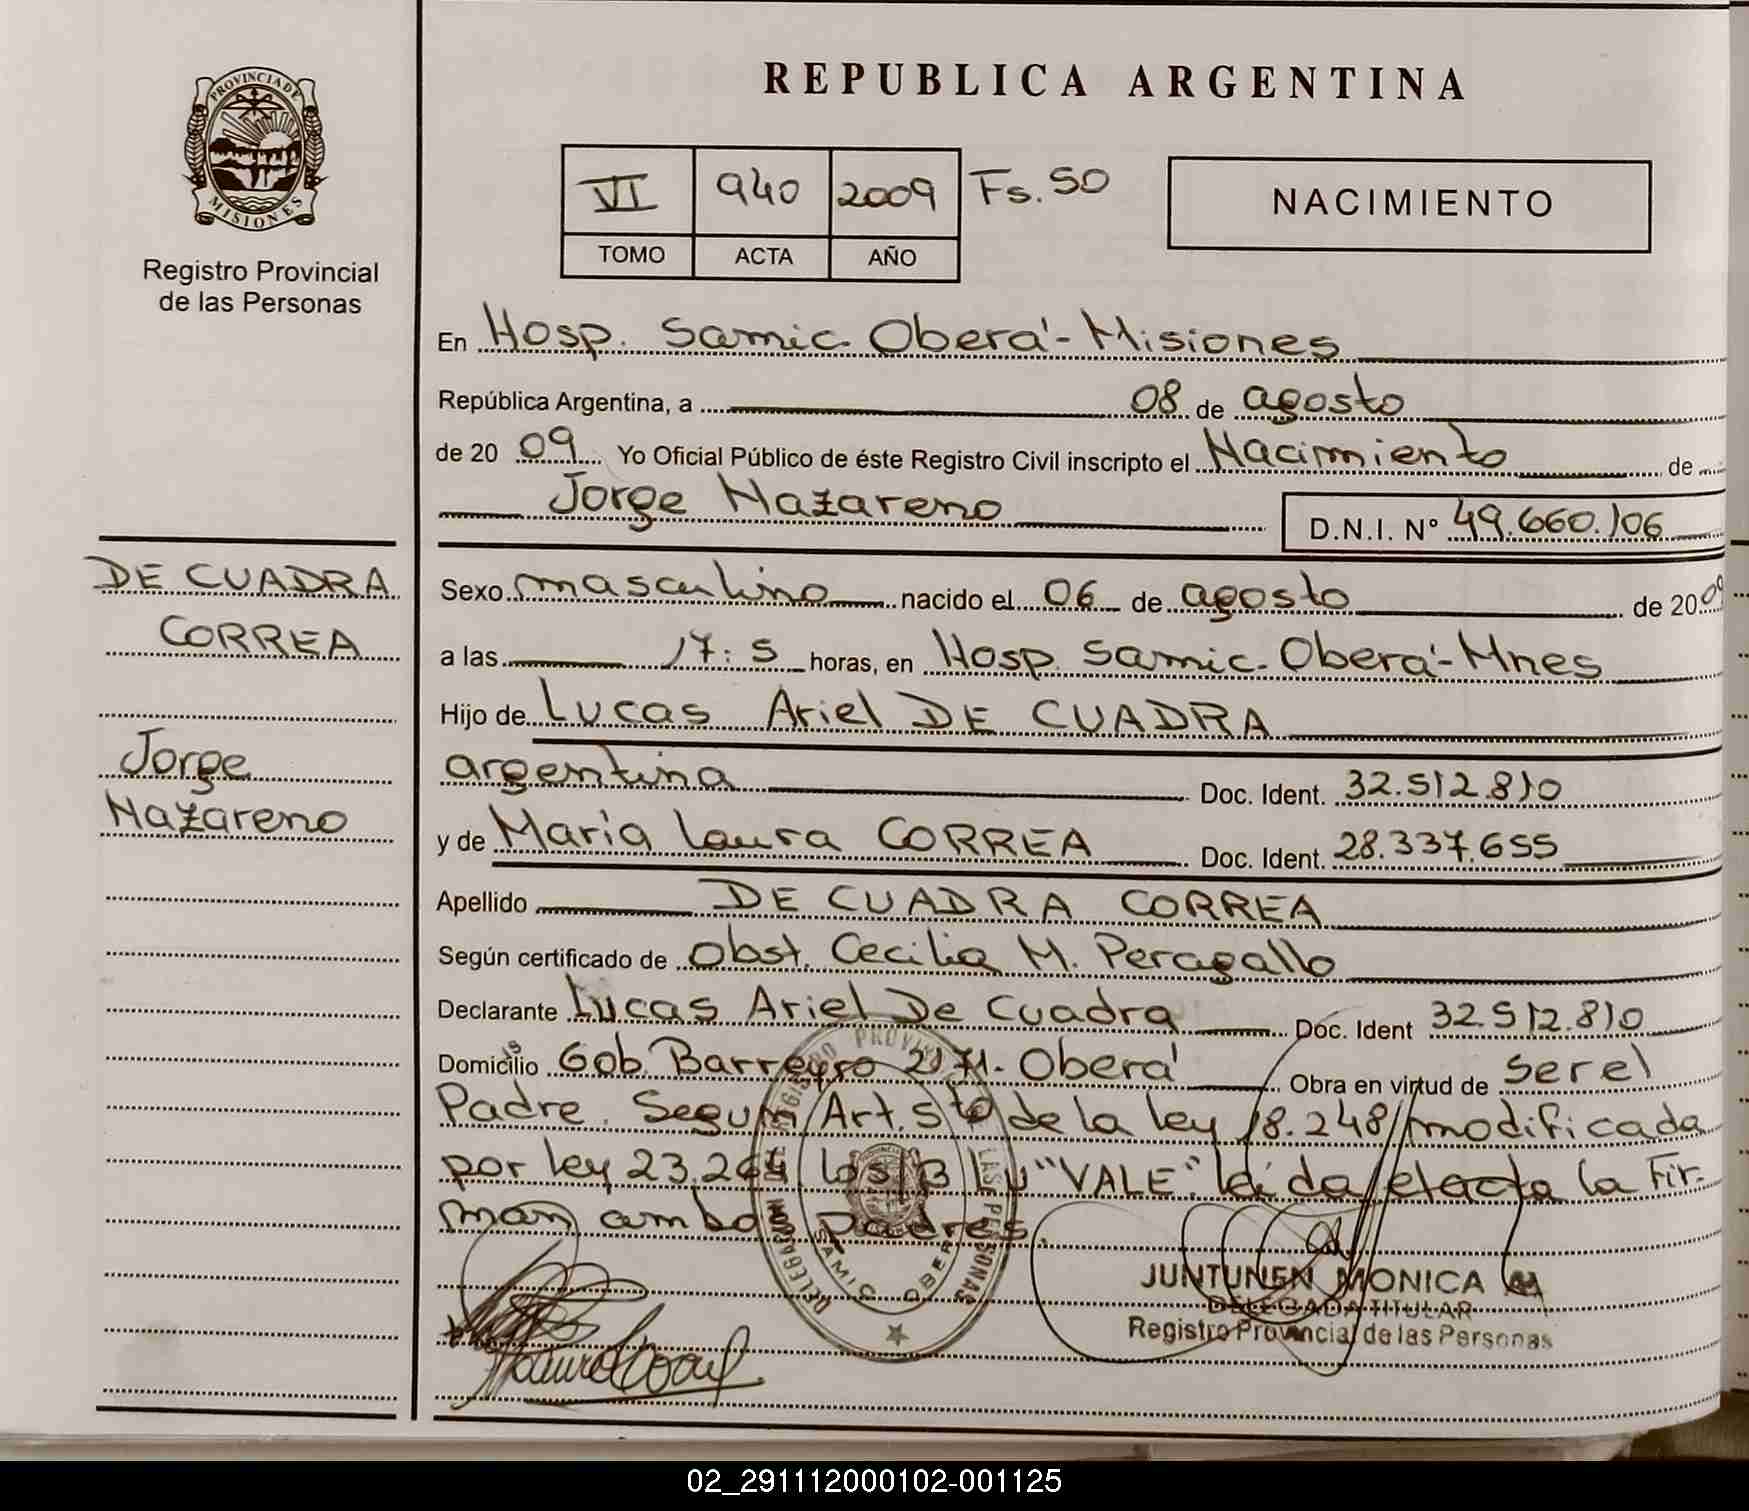 PROVINCIA DE
MISIONES
Registro Provincial
de las Personas
DE CUADRA
CORREA
Jorge
Nazareno
REPUBLICA ARGENTINA
VI 940 2009 Fs. 50
TOMO ACTA AÑO
NACIMIENTO
En Hosp. Samic. Oberá - Misiones
República Argentina, a 08 de agosto
de 20 09 Yo Oficial Público de éste Registro Civil inscripto el Nacimiento de
Jorge Nazareno D.N.I. Nº 49.660.106
Sexo masculino nacido el 06 de agosto de 20 09
a las 17:5 horas, en Hosp. Samic. Oberá - Mnes
Hijo de Lucas Ariel DE CUADRA
argentina Doc. Ident. 32.512.810
y de Maria Laura CORREA Doc. Ident. 28.337.655
Apellido DE CUADRA CORREA
Según certificado de Obst. Cecilia M. Peragallo
Declarante Lucas Ariel De Cuadra Doc. Ident 32.512.810
Domicilio Gob. Barreyro 2171. Oberá Obra en virtud de ser el
Padre. Segun Art. 5to de la ley 18.248 modificada
por ley 23.264 "VALE". la Fir-
man ambo padres.
LAS PERSONAS
DELEGACION
SAMIC OBERA
JUNTUNEN MONICA
DELEGADA TITULAR
Registro Provincial de las Personas
02_291112000102-001125